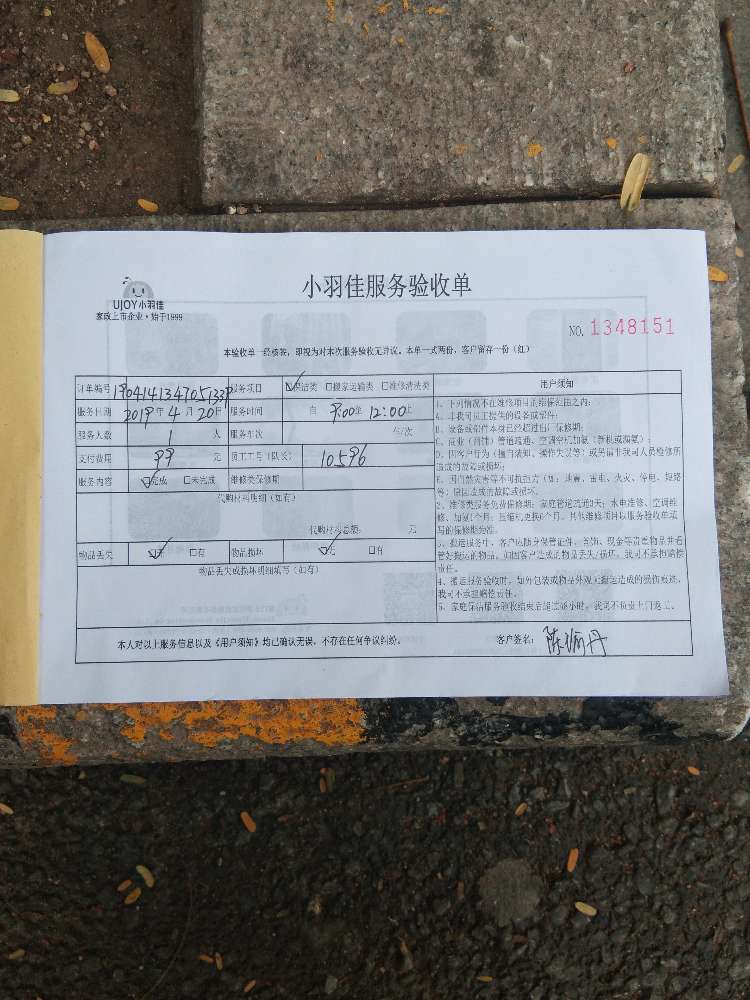 小羽佳服务验收单
UJOY小羽佳
家政上市企业·始于1999
NO. 1348151
本验收单一经核签，即视为对本次服务验收无异议。本单一式两份，客户留存一份（红）
订单编号 服务项目 ☑保洁类 □搬家运输类 □维修清洗类
服务日期 2019年4月20日 服务时间 自 9:00至 12:00止
服务人数 1 人 服务车次 车/次
支付费用 99 元 员工工号（队长） 10596
服务内容 ☑完成 □未完成 维修类保修期
代购材料明细（如有）
代购材料总额： 元
物品丢失 ☑无 □有 物品损坏 ☑无 □有
物品丢失或损坏明细填写（如有）
用户须知
1、下列情况不在维修项目的维保范围之内：
A、非我司员工提供的设备或部件；
B、设备或部件本身已经超过出厂保修期；
C、商业（商铺）管道疏通、空调空机加氨（新机或漏氨）；
D、因客户行为（擅自读知、操作失误等）或另请非我司人员检修所
造成的故障或损坏；
E、因自然灾害等不可抗拒力（如：地震、雷电、火灾、停电、短路
等）原因造成的故障或损坏。
2、维修类服务免费保修期：家庭管道疏通7天；水电维修、空调维
修、加氨1个月；压缩机更换6个月。其他维修项目以服务验收单填
写的保修期为准。
3、搬运服务中，客户应随身保管证件、首饰、现金等贵重物品并看
管好搬运的物品，如因客户造成的物品丢失/损坏，我司不承担赔偿
责任。
4、搬运服务验收时，如外包装或物品外观无搬运造成的受损痕迹，
我司不承担赔偿责任。
5、家庭保洁服务验收结束后超过 小时，我司不负责上门返工。
本人对以上服务信息以及《用户须知》均已确认无误，不存在任何争议纠纷。 客户签名：